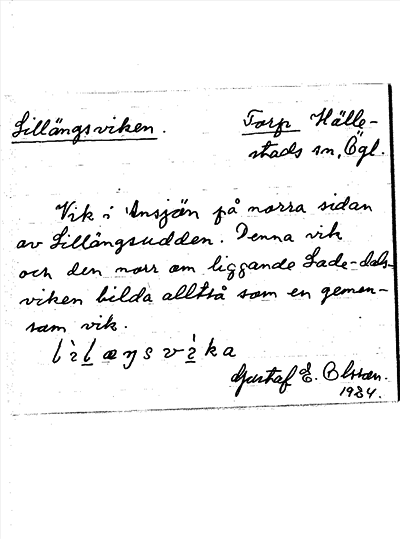 Lillängsviken. Torp Hälle-
stads sn, Ögl.
Vik i Ensjön på norra sidan
av Lillängsudden. Denna vik
och den norr om liggande Lade-dals-
viken bilda alltså som en gemen-
sam vik.
Gustaf E. Olsson.
1934.